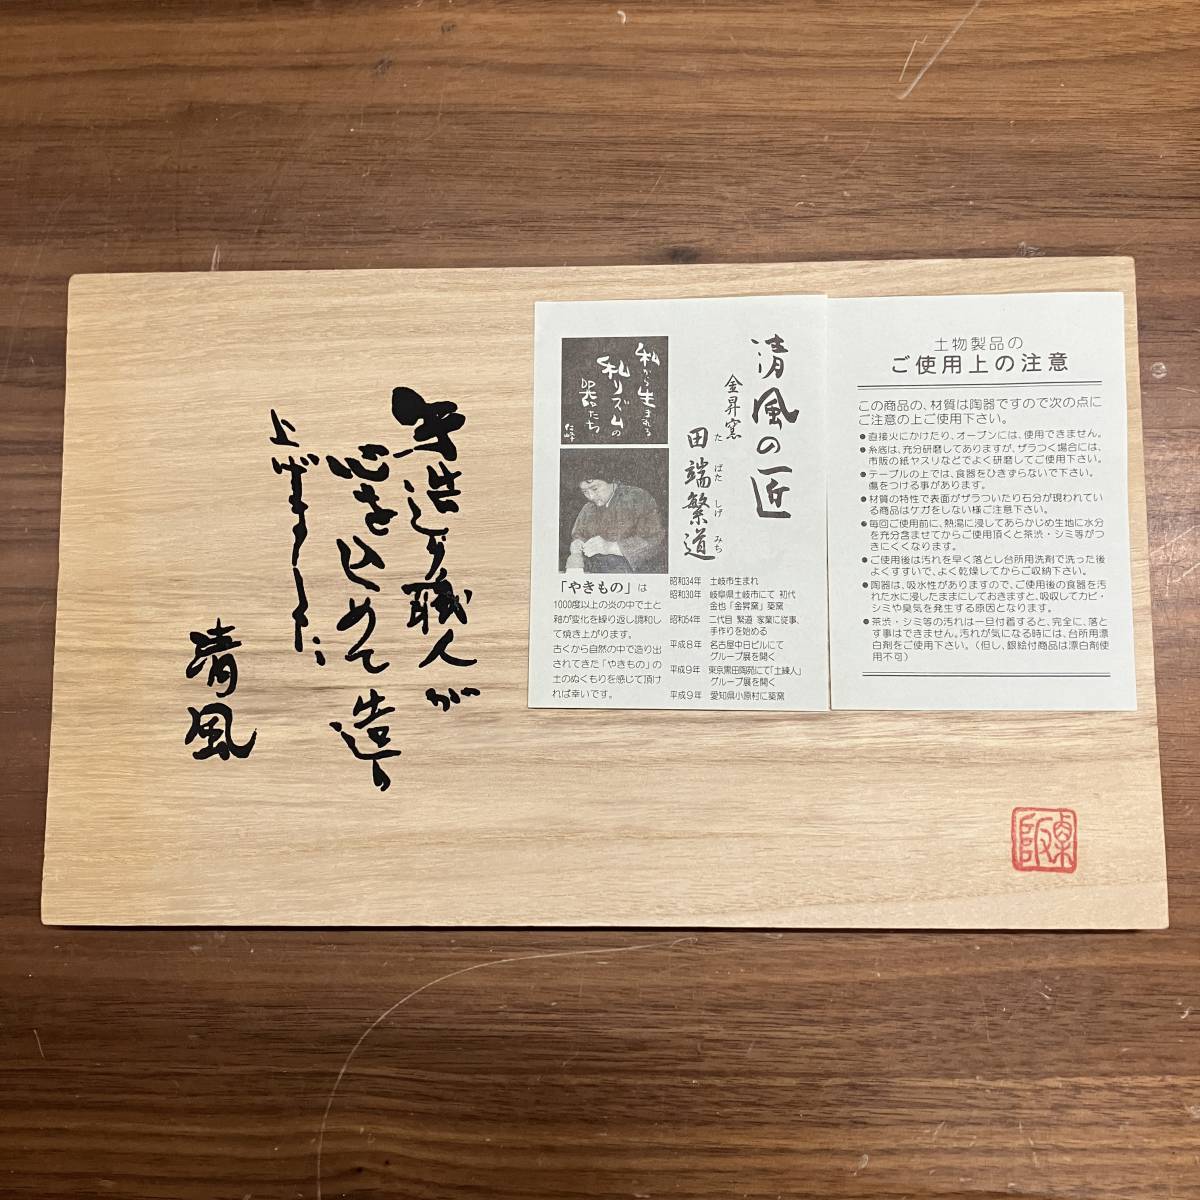 手造り職人が
心を込めて造り
上げました。
清風
清風の匠
金昇窯
田端繁道
た ばた しげ みち
私から生まれる
私リズムの
器たち
「やきもの」は
1000度以上の炎の中で土と
釉が変化を繰り返し調和し
て焼き上がります。
古くから自然の中で造り出
されてきた「やきもの」の
土のぬくもりを感じて頂け
れば幸いです。
昭和34年 土岐市生まれ
昭和30年 岐阜県土岐市にて 初代
金也「金昇窯」築窯
昭和54年 二代目 繁道 家業に従事、
手作りを始める
平成8年 名古屋中日ビルにて
グループ展を開く
平成9年 東京黒田陶苑にて「土練人」
グループ展を開く
平成9年 愛知県小原村に築窯
土物製品の
ご使用上の注意
この商品の、材質は陶器ですので次の点に
ご注意の上ご使用下さい。
●直接火にかけたり、オーブンには、使用できません。
●糸底は、充分研磨してありますが、ザラつく場合には、
市販の紙ヤスリなどでよく研磨してご使用下さい。
●テーブルの上では、食器をひきずらないで下さい。
傷をつける事があります。
●材質の特性で表面がザラついたり石分が現われてい
る商品はケガをしない様ご注意下さい。
●毎回ご使用前に、熱湯に浸してあらかじめ生地に水分
を充分含ませてからご使用頂くと茶渋・シミ等がつ
きにくくなります。
●ご使用後は汚れを早く落とし台所用洗剤で洗った後
よくすすいで、よく乾燥してからご収納下さい。
●陶器は、吸水性がありますので、ご使用後の食器を汚
れた水に浸したままにしておきますと、吸収してカビ・
シミや臭気を発生する原因となります。
●茶渋・シミ等の汚れは一旦付着すると、完全に、落と
す事はできません。汚れが気になる時には、台所用漂
白剤をご使用下さい。(但し、銀絵付商品は漂白剤使
用不可)